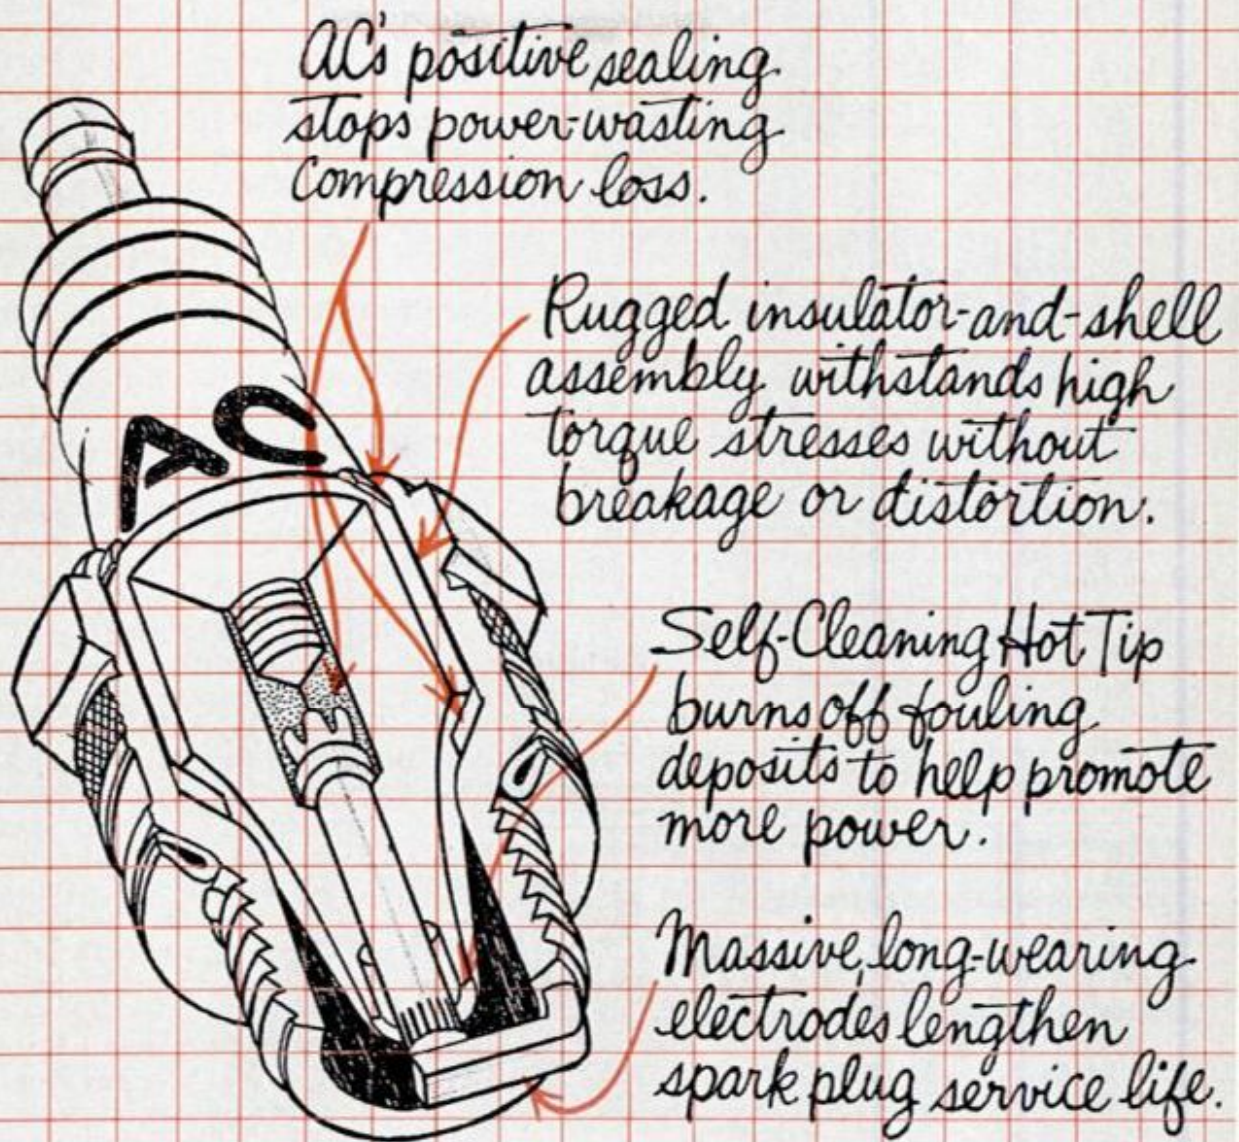 AC's positive sealing
stops power-wasting
compression loss.
AC
Rugged insulator-and-shell
assembly withstands high
torque stresses without
breakage or distortion.
Self-Cleaning Hot Tip
burns off fouling
deposits to help promote
more power.
Massive, long-wearing
electrodes lengthen
spark plug service life.